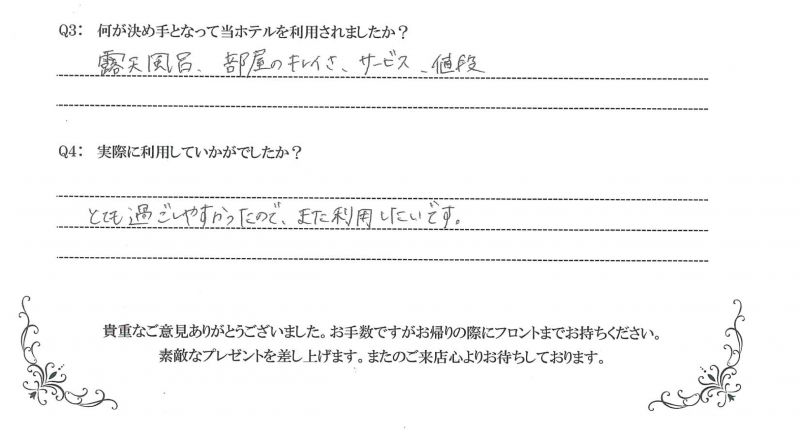 Q3: 何が決め手となって当ホテルを利用されましたか？
露天風呂、部屋のキレイさ、サービス、値段
Q4: 実際に利用していかがでしたか？
とても過ごしやすかったので、また利用したいです。
貴重なご意見ありがとうございました。お手数ですがお帰りの際にフロントまでお持ちください。
素敵なプレゼントを差し上げます。またのご来店心よりお待ちしております。